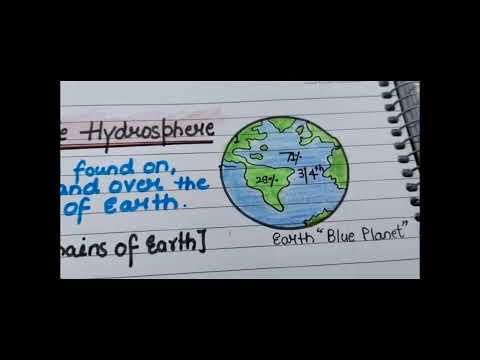 e Hydrosphere
found on,
and over the
of Earth.
mains of Earth]
71%
3/4th
29%
Earth "Blue Planet"